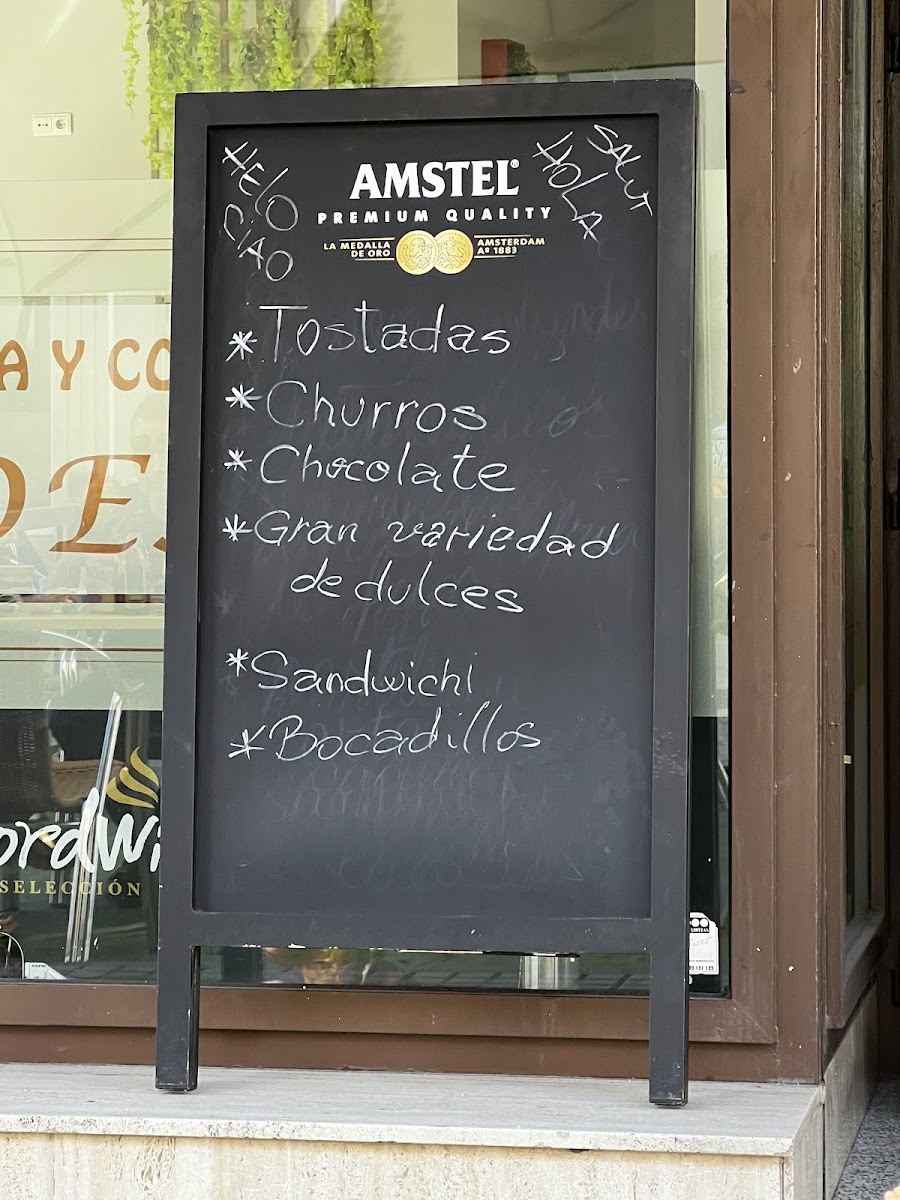 HELO
CIAO
AMSTEL®
PREMIUM QUALITY
LA MEDALLA
DE ORO
AMSTERDAM
Aº 1883
HOLA
SALUT
*Tostadas
*Churros
*Chocolate
*Gran variedad
de dulces
*Sandwichl
*Bocadillos
A Y CO
DES
ordwi
SELECCIÓN